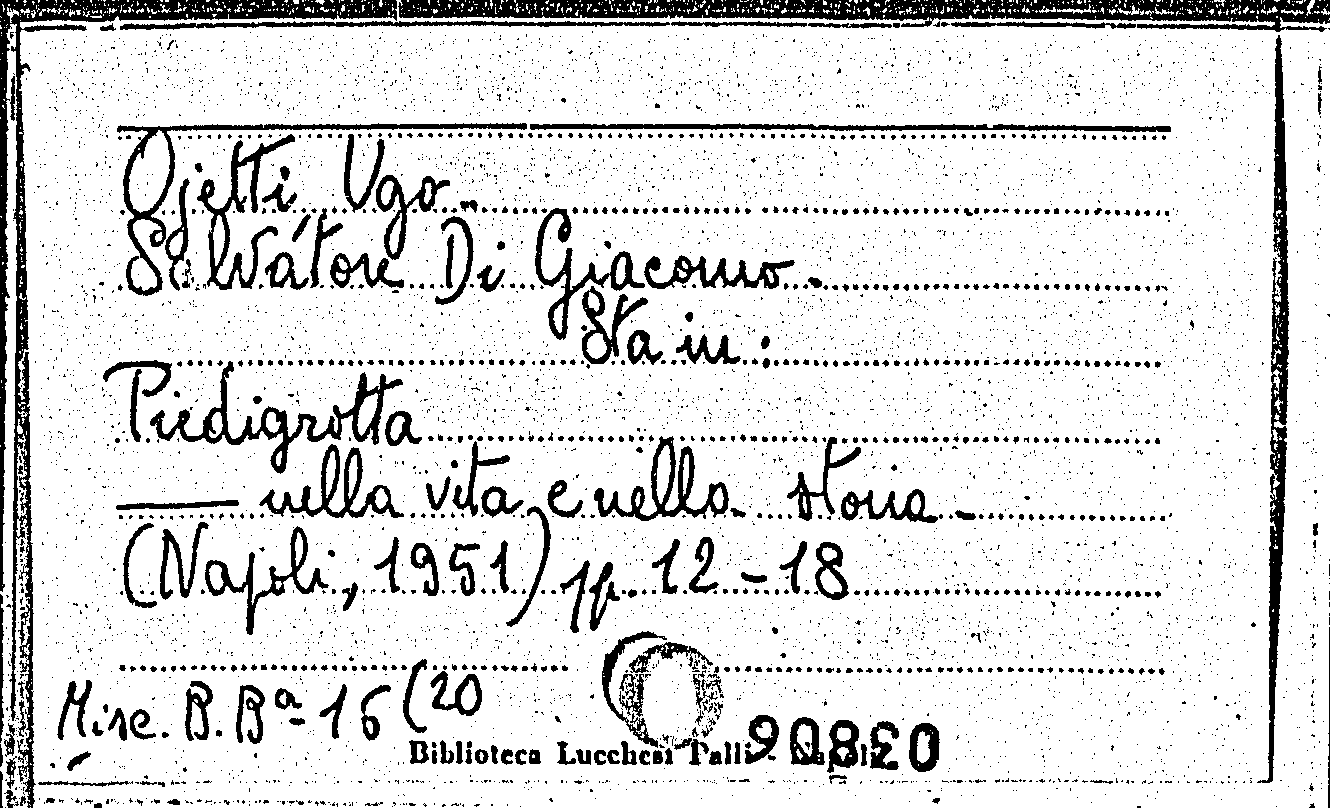 Ojetti Ugo..
Salvatore Di Giacomo.
Sta in:
Piedigrotta
— nella vita e nella storia -
(Napoli, 1951) pp. 12-18
Misc. B. Bª- 16 (20
Biblioteca Lucchesi Palli - Napoli